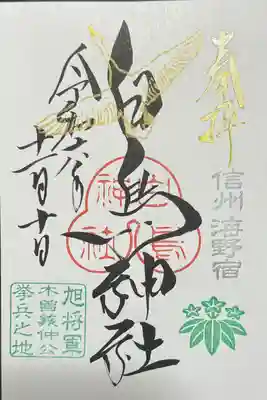 奉拝
信州 海野宿
白鳥神社
白鳥
神社
令和六年
十一月十日
旭将軍
木曽義仲公
挙兵之地